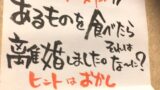 あるものを食べたら
離婚しました。それは
な〜んだ?
ヒントはおかし